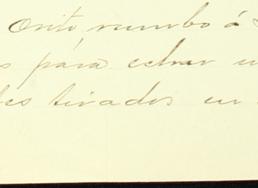 Orito, rumbo á
s para echar u
les tirados en